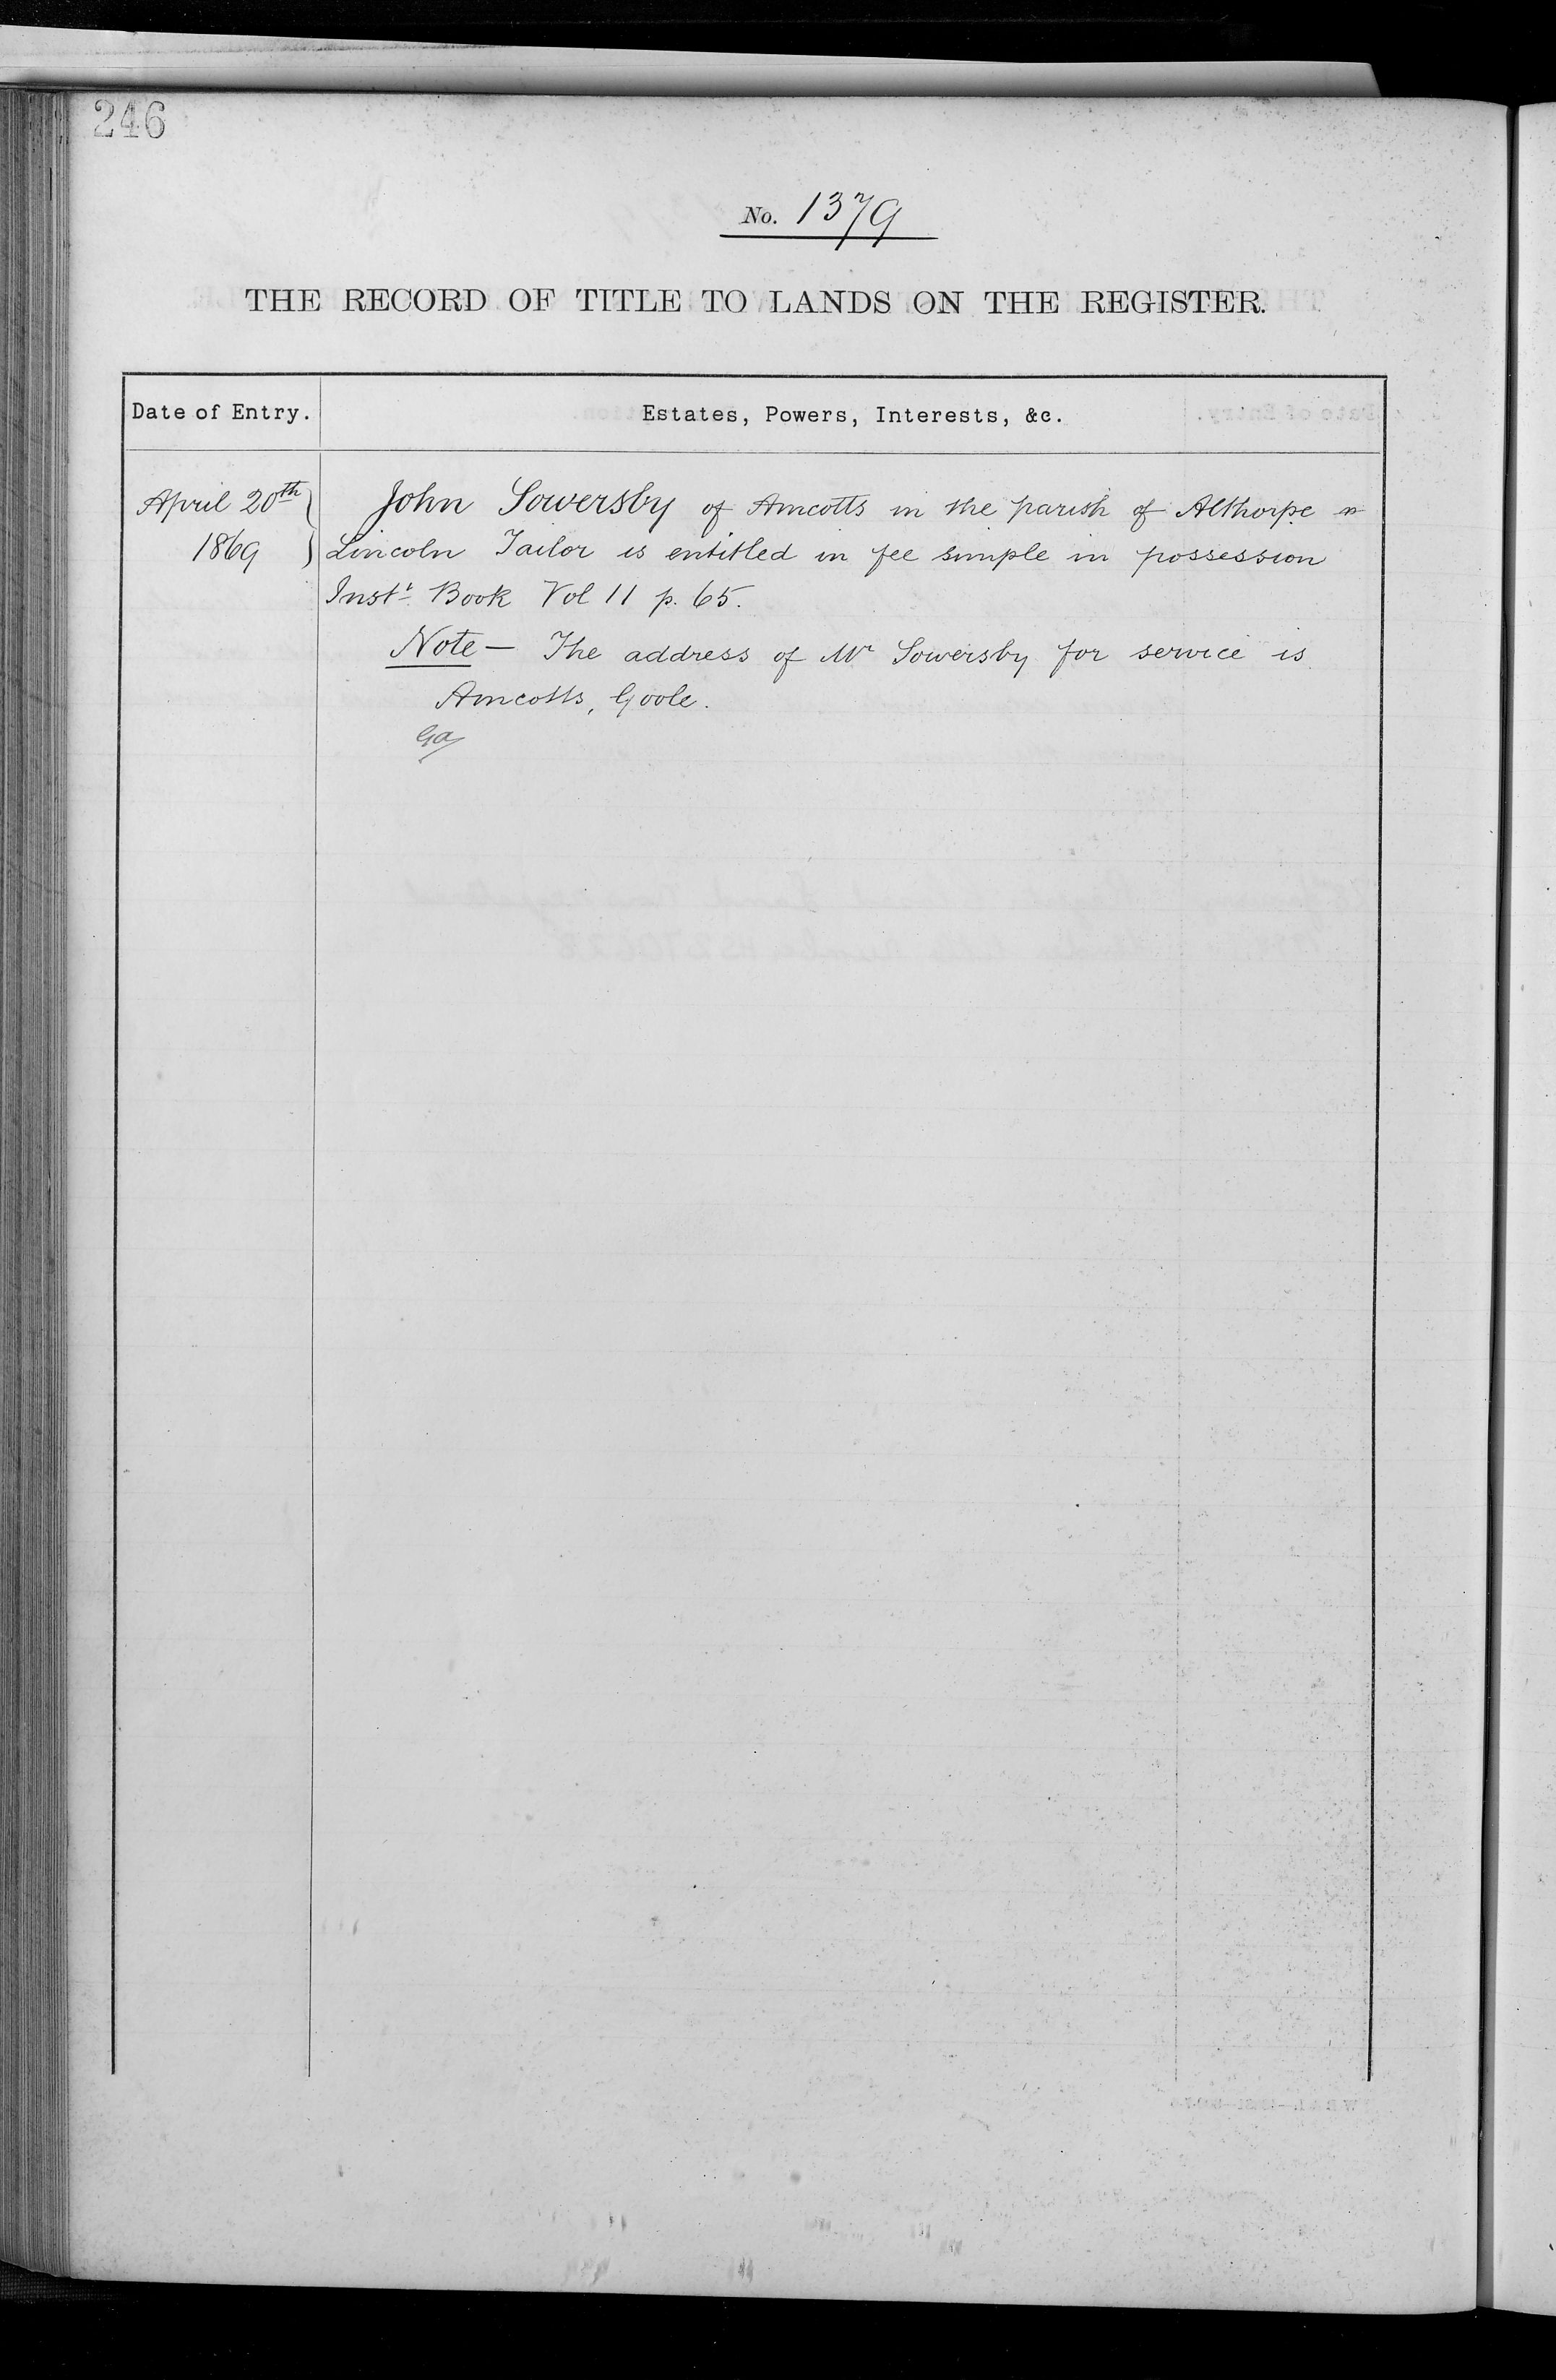 246
No. 1379
THE RECORD OF TITLE TO LANDS ON THE REGISTER.
Date of Entry.
Estates, Powers, Interests, &c.
April 20th
1869
John Sowersby of Amcotts in the parish of Althorpe in
Lincoln Tailor is entitled in fee simple in possession
Inst. Book Vol 11 p. 65.
Note — The address of Mr Sowersby for service is
Amcotts, Goole.